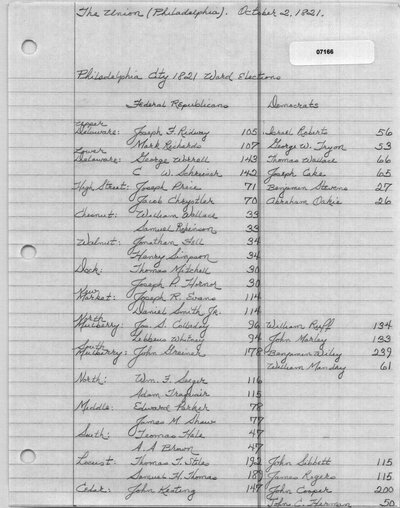 The Union (Philadelphia). October 2, 1821.
07166
Philadelphia City 1821 Ward Elections
Federal Republicans Democrats
Upper
Delaware: Joseph F. Ridway 105 Israel Roberts 56
Mark Richards 107 George W. Tryon 53
Lower
Delaware: George Worrell 143 Thomas Wallace 66
C W. Schreiner 142 Joseph Cake 65
High Street: Joseph Price 71 Benjamin Stevens 27
Jacob Chrystler 70 Abraham Oakie 26
Chesnut: William Wallace 33
Samuel Robinson 33
Walnut: Jonathan Fell 34
Henry Simpson 34
Dock: Thomas Mitchell 30
Joseph P. Hornor 30
New
Market: Joseph R. Evans 114
Daniel Smith Jr. 114
North
Mulberry: Jos. S. Colladay 96 William Ruff 134
Lebbeus Whitney 94 John Marley 133
South
Mulberry: John Streiner 178 Benjamin Wiley 239
William Mandry 61
North: Wm. F. Seeger 116
Adam Traquair 115
Middle: Edward Parker 78
James M. Shaw 77
South: Thomas Hale 47
A. A. Brown 47
Locust: Thomas T. Stiles 192 John Sibbett 115
Samuel H. Thomas 189 James Rogers 115
Cedar: John Keating 147 John Cooper 200
John C. Harman 50